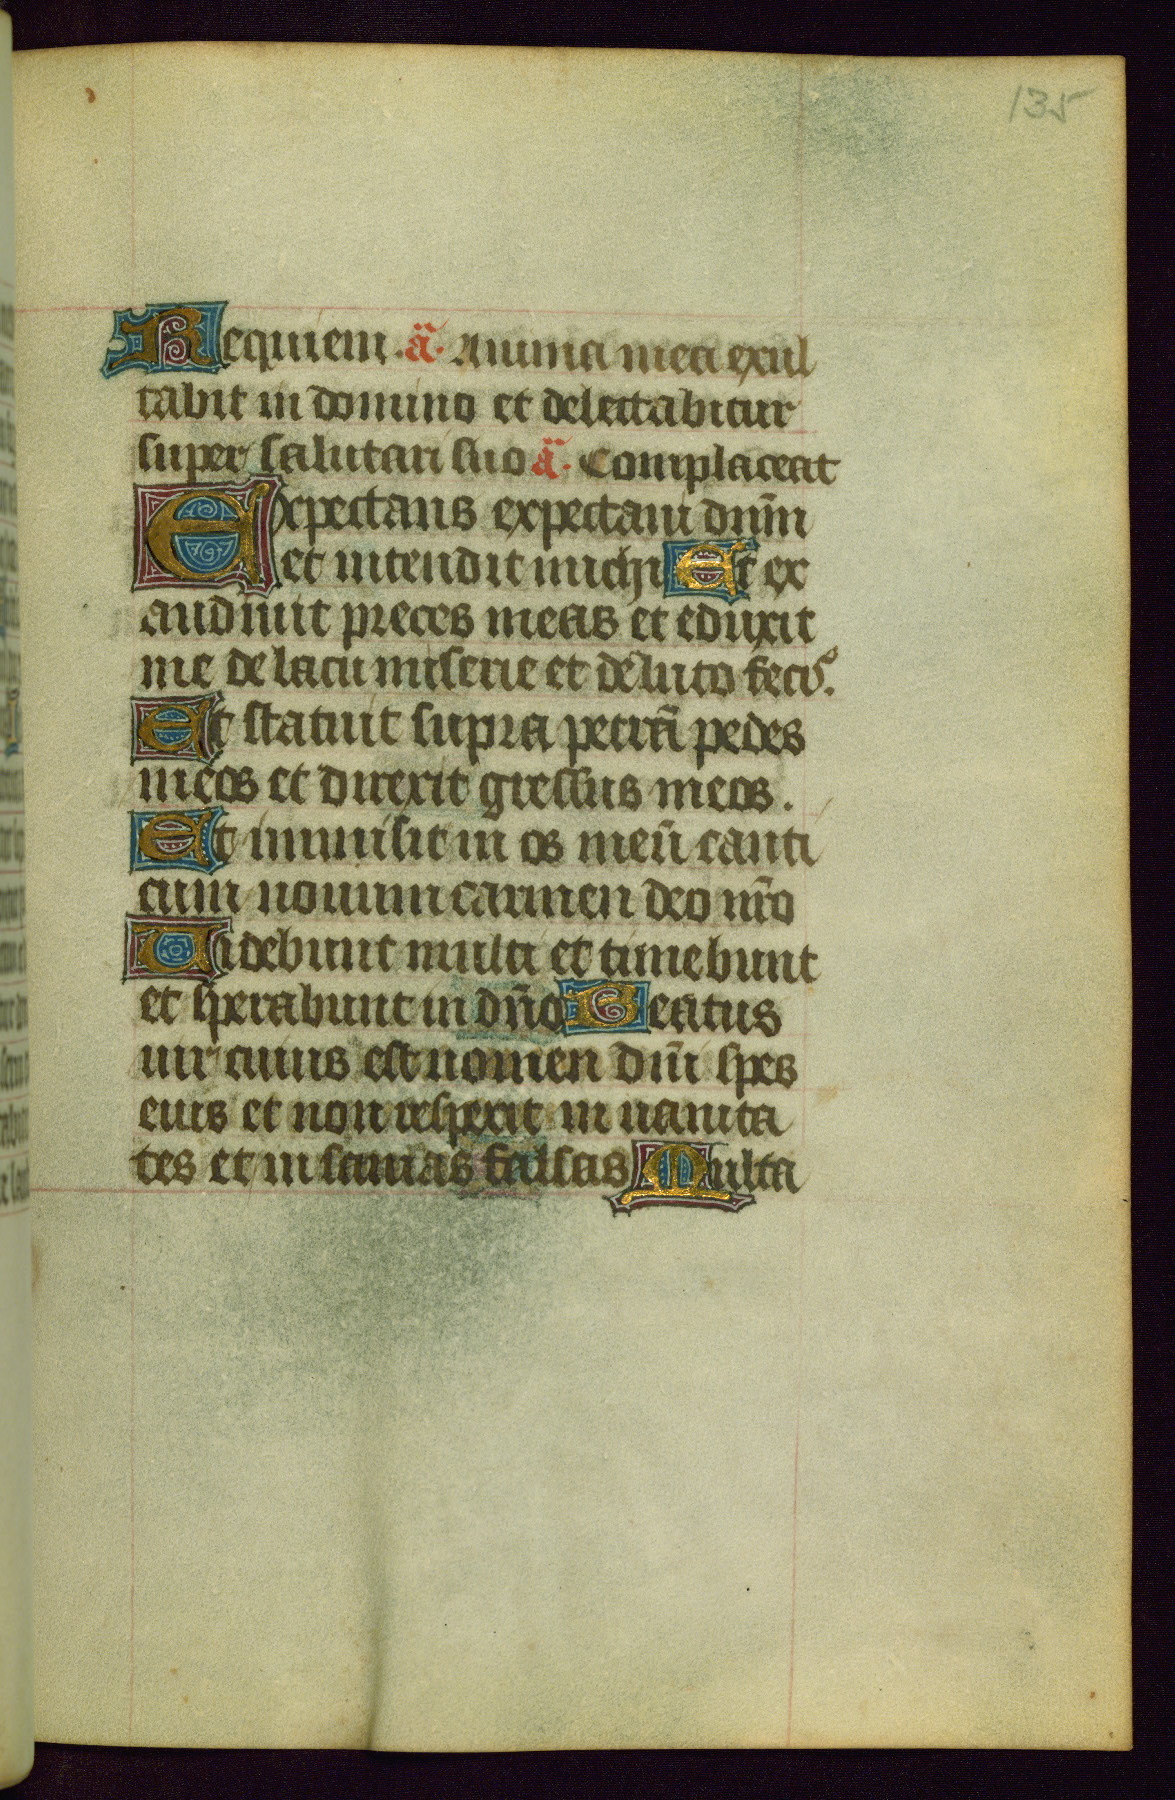 135
Requiem. a̅. Anima mea exul
tabit in domino et delectabitur
super salutari suo a̅. Complaceat
Expectans expectaui dn̅m
et intendit michi Et ex
audiuit preces meas et eduxit
me de lacu miserie et de luto feciꝰ.
Et statuit supra petra̅ pedes
meos et direxit gressus meos.
Et immisit in os meu̅ canti
cum nouum carmen deo nr̅o
Uidebunt multi et timebunt
et sperabunt in dn̅o Beatus
uir cuius est nomen dn̅i spes
eius et non respexit in uanita
tes et in sanias falsas Multa